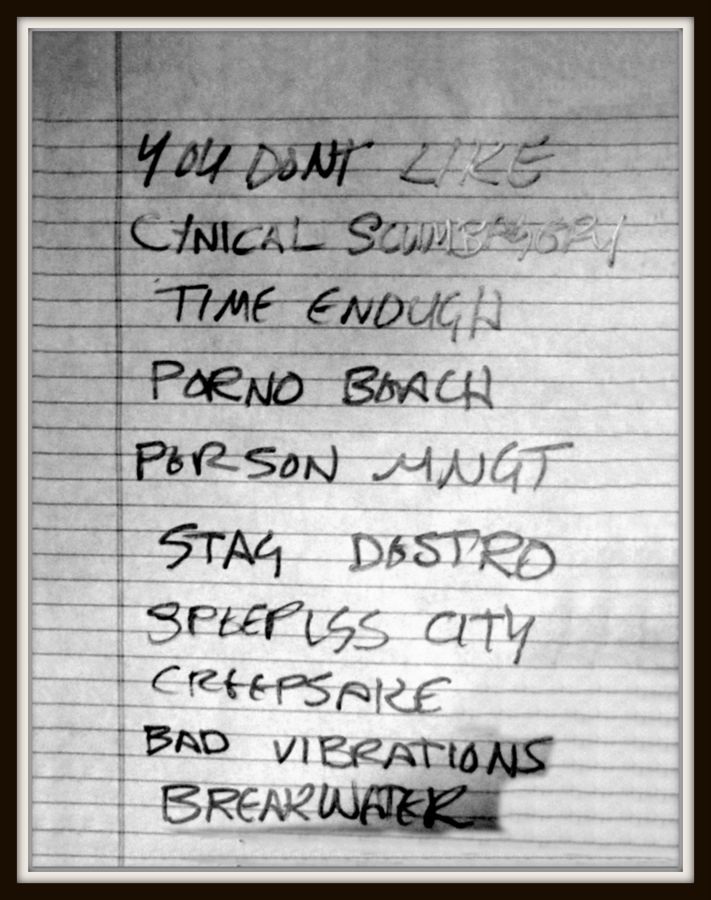 YOU DONT LIKE
CYNICAL SCUMBAGGERY
TIME ENOUGH
PORNO BEACH
PERSON MNGT
STAG DESTRO
CITY
CREEPSAKE
BAD VIBRATIONS
BREAKWATER